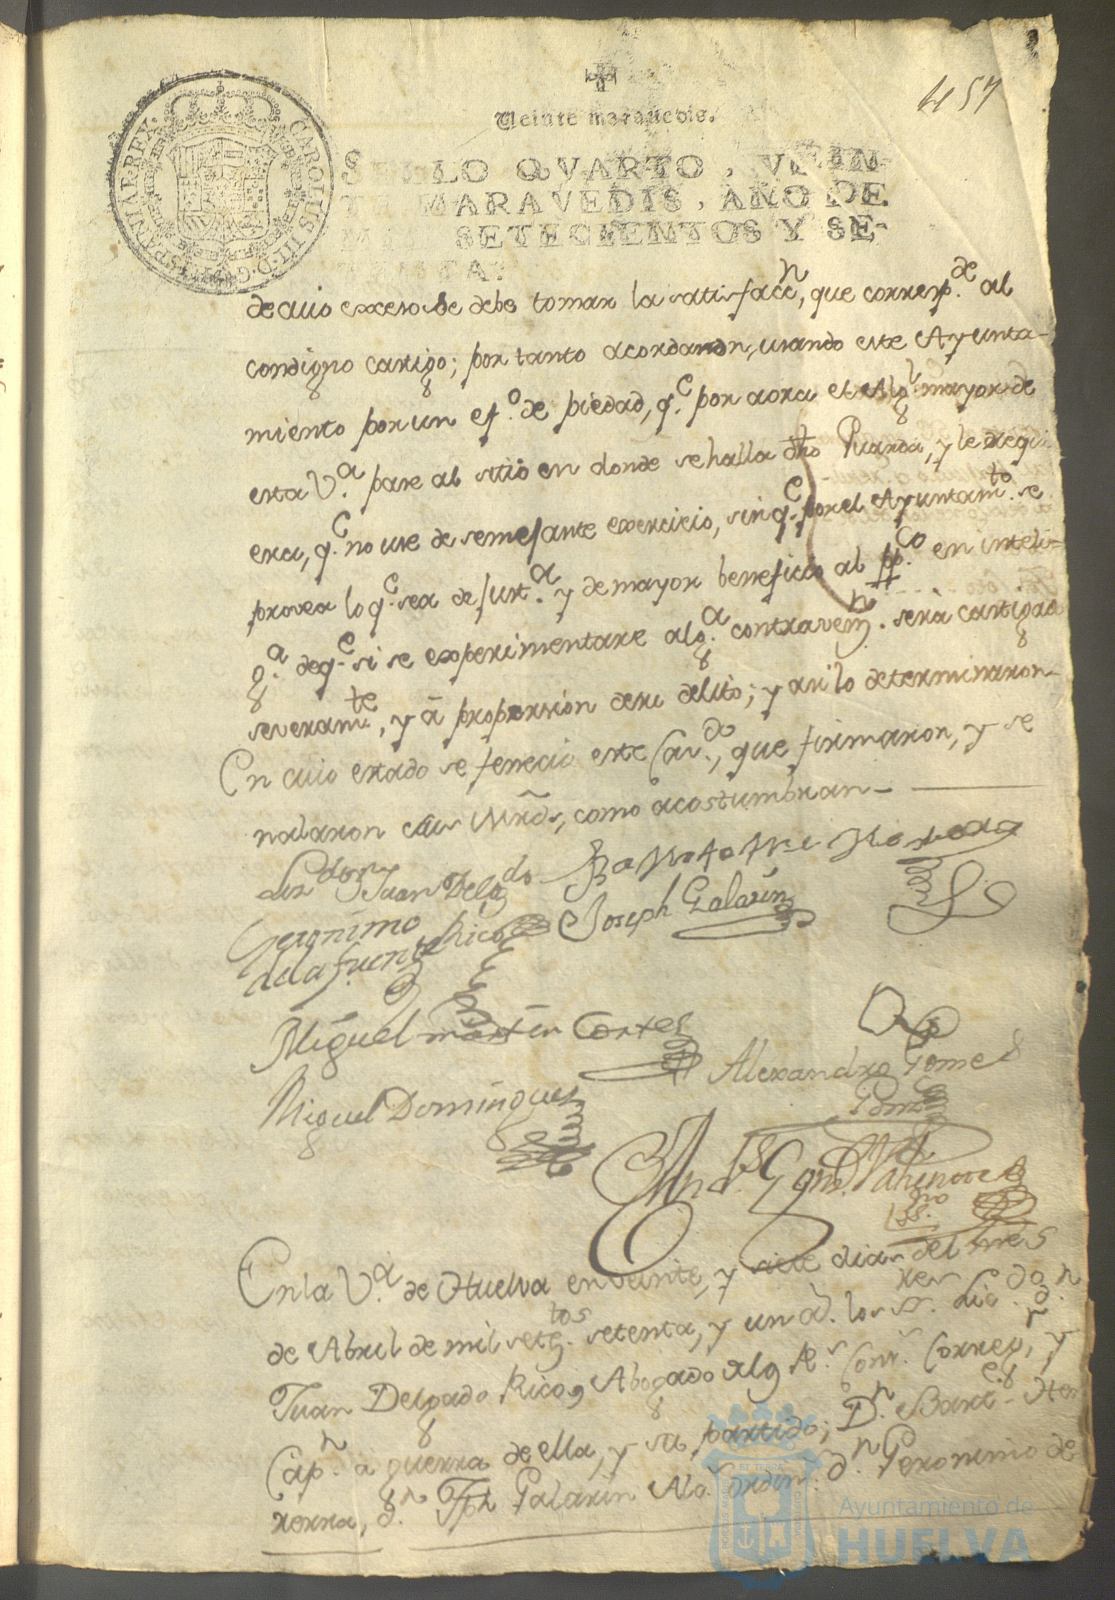 457
Veinte maravedis.
CAROLUS III. D. G. HISPANIAR. REX.
S LLO QVARTO, VEIN-
T MARAVEDIS, AÑO DE
SETECIENTOS Y SE-
TENTA.
de cuio exceso se debe tomar la satisfaccn, que corresp.de al
condigno castigo; por tanto acordaron, usando este Ayunta-
miento por un ef.o de piedad, q.e por aora el Alg.l mayor de
esta V.a pase al sitio en donde se halla dho Guarda, y le requi
era, q.e no use de semejante exercicio, sin q.e por el Ayuntam.to se
provea lo q.e sea de just.a y de mayor beneficio al pp.co en inteli-
g.a de q.e si se experimentare alg.a contraven.n sera castigado
severam.te, y â proporsion de su delito; y asi lo determinaron
En cuio estado se fenecio este Cav.do, que firmaron, y se
ñalaron sus Mrds, como acostumbran
Juan Delg.do Rico
Joseph Galarin
Geronimo
de la fuente
Miguel martin Cortes
Alexandro Gome
Miguel Dominguez
En la V.a de Huelva en veinte, y siete dias del mes
de Abril de mil set.tos setenta, y un a.s los ss.res Lic.do D.n
Juan Delgado Rico, Abogado de los R.s Con.s Correg.r y
Cap.n a guerra de ella, y su partido; D.n Bart.e Her
rera, D.n Jph Galarin Alc. ordin.s D.n Geronimo de
Ayuntamiento de
HUELVA